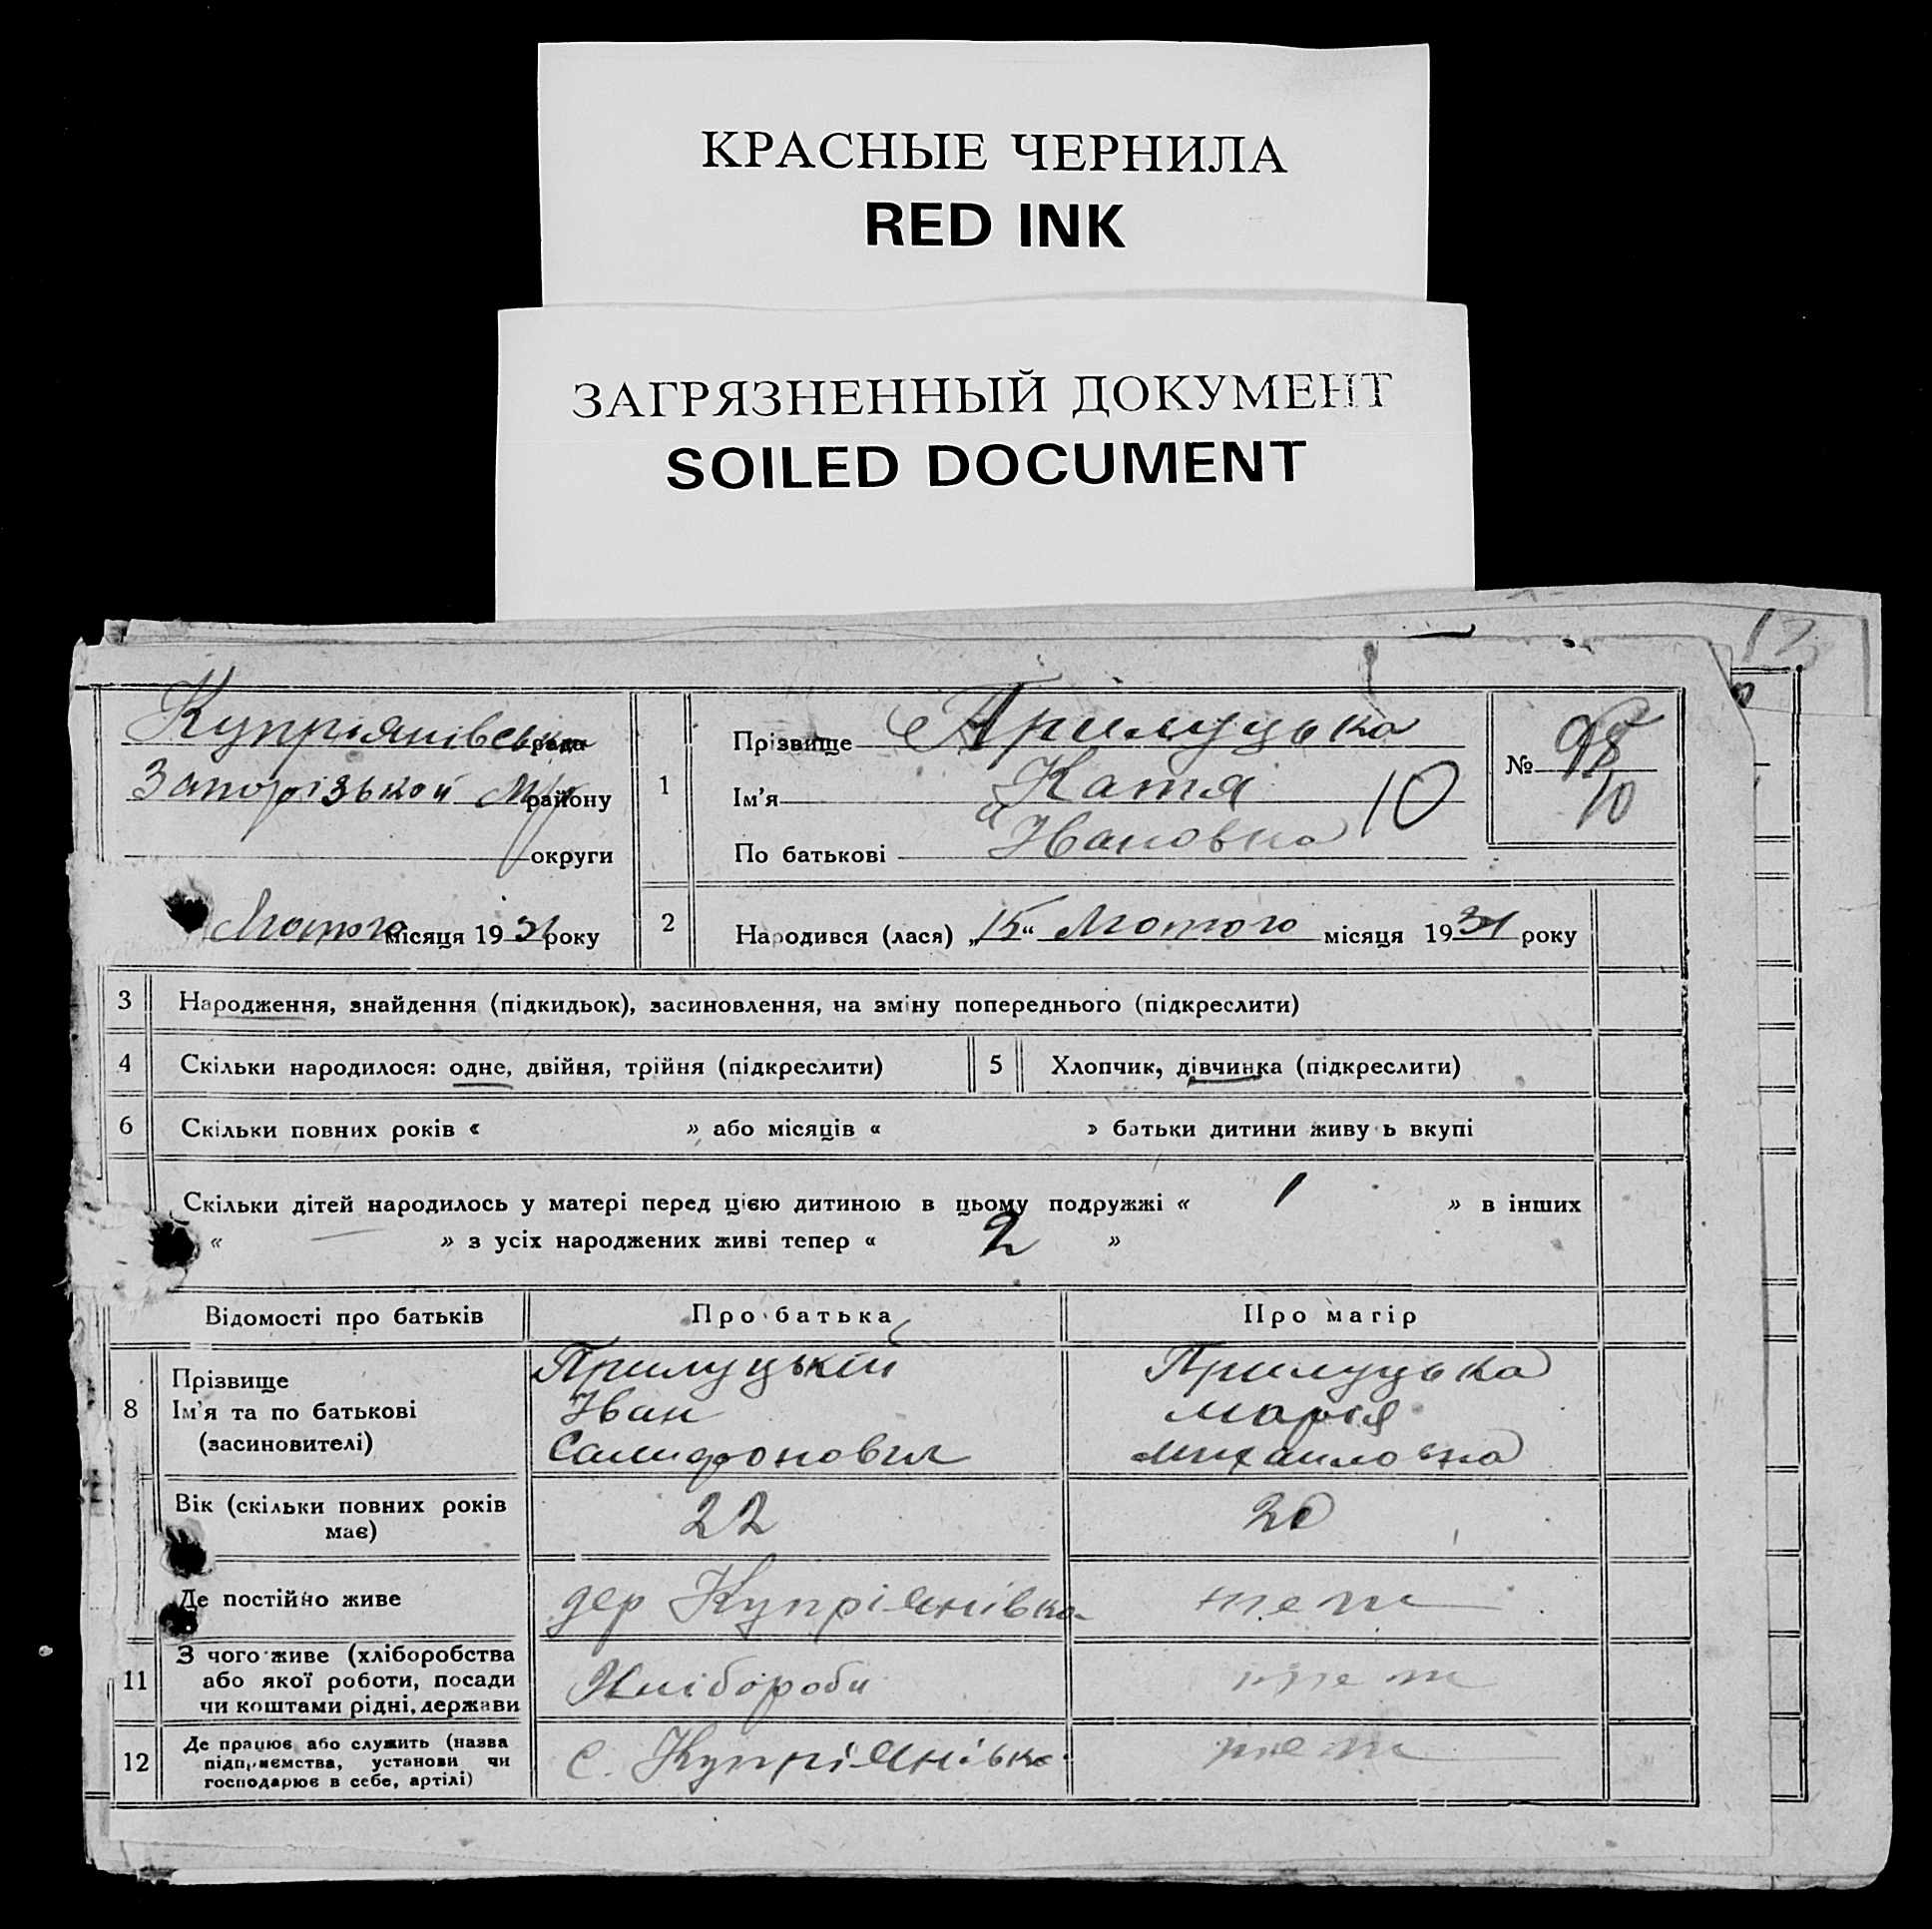 КРАСНЫЕ ЧЕРНИЛА
RED INK
ЗАГРЯЗНЕННЫЙ ДОКУМЕНТ
SOILED DOCUMENT
12
Купріянівська рада
Запорізької району
округи
Лютого місяця 1931 року
1 Прізвище Прилуцька
Ім'я Катя 10
По батькові Ивановна
№ 98
10
2 Народився (лася) „15“ Лютого місяця 1931 року
3 Народження, знайдення (підкидьок), засиновлення, на зміну попереднього (підкреслити)
4 Скільки народилося: одне, двійня, трійня (підкреслити) 5 Хлопчик, дівчинка (підкреслити)
6 Скільки повних років « » або місяців « » батьки дитини живуть вкупі
Скільки дітей народилось у матері перед цією дитиною в цьому подружжі « 1 » в інших
« — » з усіх народжених живі тепер « 2 »
Відомості про батьків Про батька Про матір
8 Прізвище Прилуцькій Прилуцька
Ім'я та по батькові Иван Марія
(засиновителі) Самифонович Михаиловна
Вік (скільки повних років має) 22 20
Де постійно живе дер Купріянівка теж
11 З чого живе (хліборобства
або якої роботи, посади Хлібороби теж
чи коштами рідні, держави
12 Де працює або служить (назва
підприємства, установи чи с. Купріянівка теж
господарює в себе, артілі)